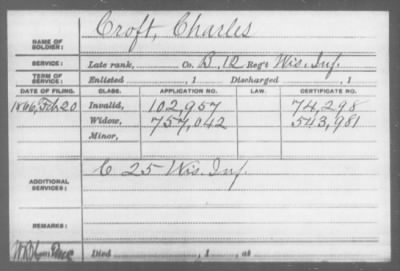 Croft, Charles
NAME OF SOLDIER:
SERVICE: Late rank, Co. B, 12 Reg't Wis. Inf.
TERM OF SERVICE: Enlisted , 1 Discharged , 1
DATE OF FILING. CLASS. APPLICATION NO. LAW. CERTIFICATE NO.
1866, Feb 20 Invalid, 102,957 74,298
Widow, 757,042 543,981
Minor,
ADDITIONAL SERVICES: C 25 Wis. Inf.
REMARKS:
Died , 1 , at